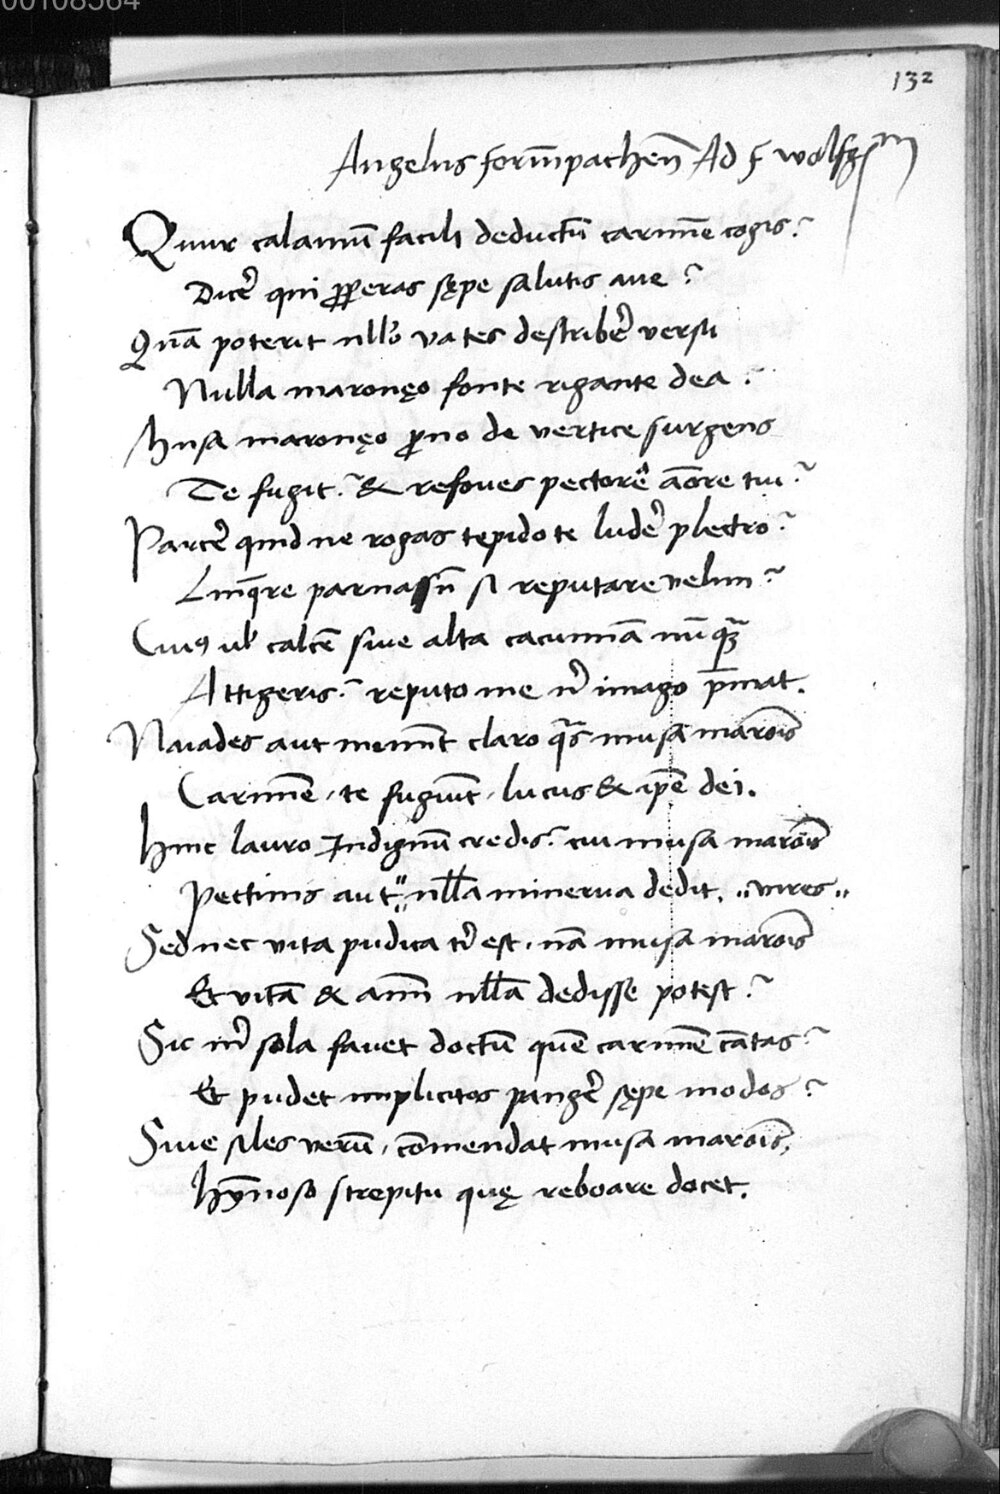 00108564
132
Angelus formpachen̄ Ad f wolfg
Quur calamū facili deductū carmīe cogis?
Dicer̉ qui ꝓperas sępe salutis aue?
Quā poterit nll̉o vates describer̉ versu
Nulla maronęo fonte rigante dea?
Musa maronęo ꝓno de vertice surgens
Te fugit? & refoues pectore aōre tui?
Parcer̉ quid ne rogas tepido te luder̉ plectro?
Linq̄re parnasūm si reputare uelim?
Cuiꝰ ul̉ calcē siue alta cacumīa nūquā
Attigeris? reputo me n̄ imago p̄mat.
Naiades aut memīt claro quās musa marōis
Carmīe, te fugiūt, lucus & ip̄e dei.
Hinc lauro Indignū credis? cui musa marōis
Pectinis aut" nl̄la minerua dedit. "uires"
Sed nec vita pudica t̉ est, nā musa marōis
Et vitā & aīm nl̄la dedisse potest?
Sic m̉ sola fauet doctū quē carmīe cātas?
Et pudet implicitos panger̉ sępe modos?
Siue siles verū, cōmendat musa marōis,
Hȳnoso strepitu quę reboare docet.